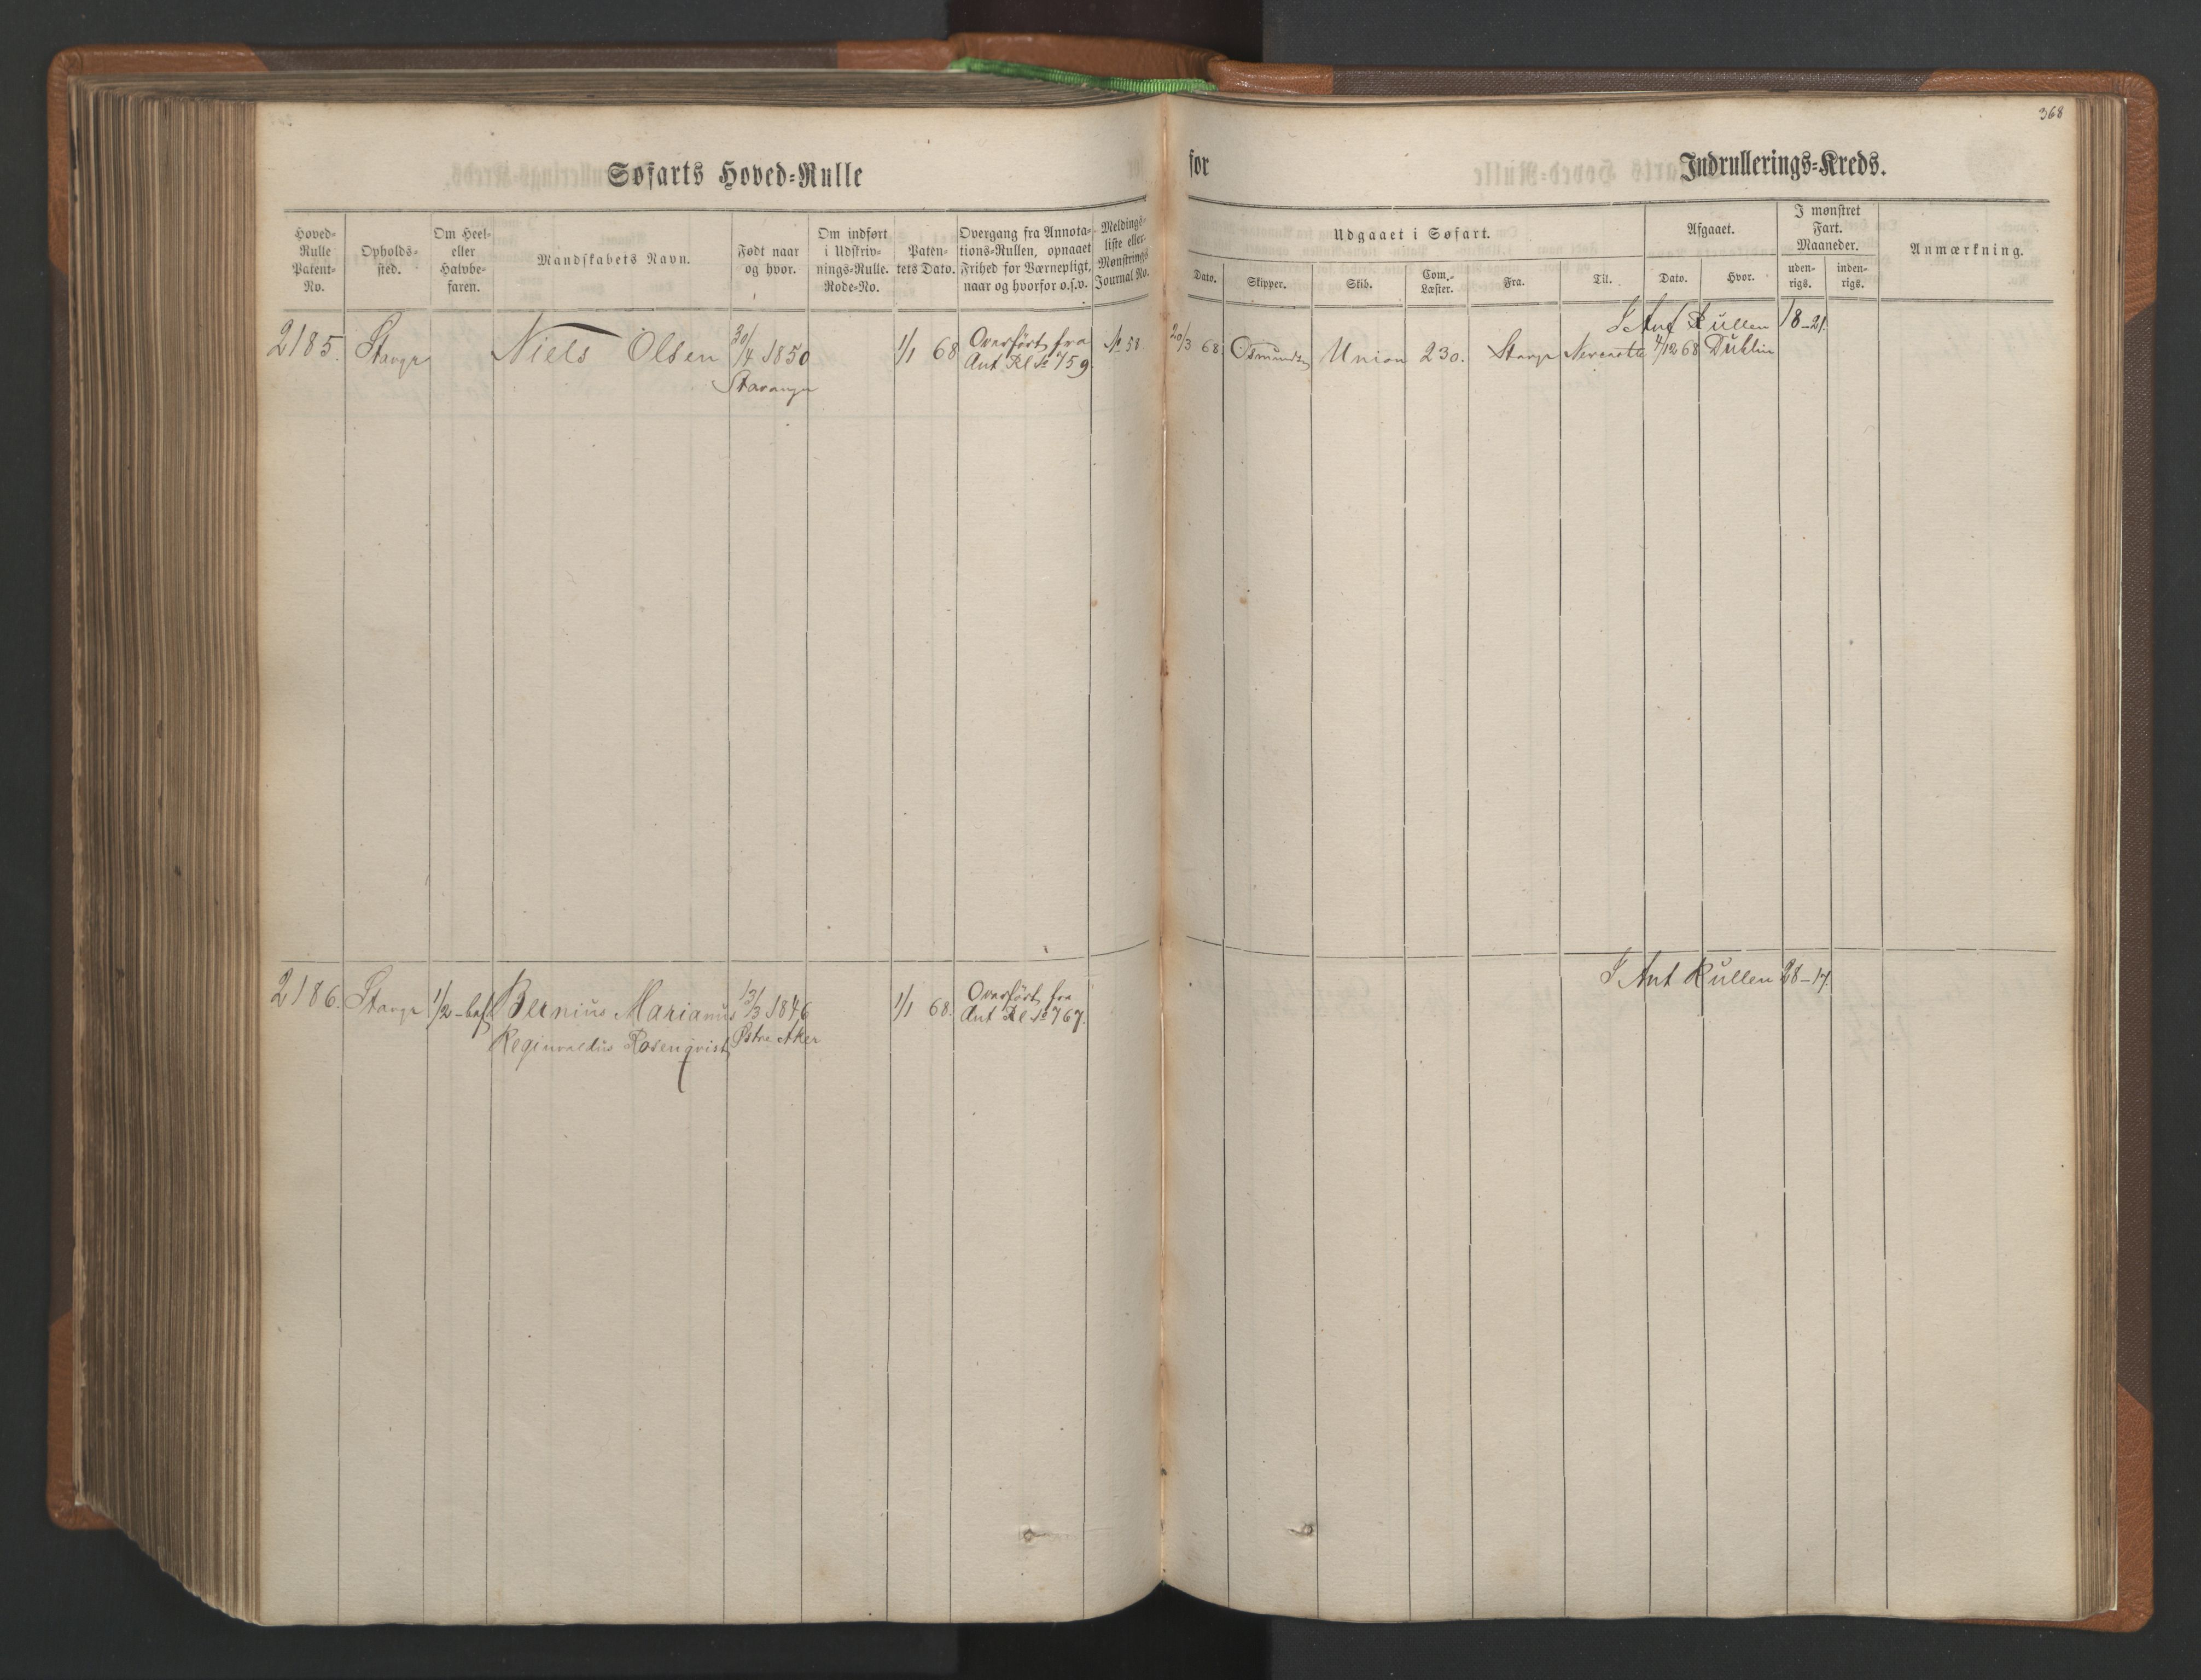 368
Søfarts Hoved=Rulle for Indrullerings=Kreds.
Hoved=Rulle Patent=No.
Opholds=sted.
Om Heel= eller Halvbe=faren.
Mandskabets Navn.
Født naar og hvor.
Om indført i Udskriv=nings=Rulle. Rode=No.
Paten=tets Dato.
Overgang fra Annota=tions=Rullen, opnaaet Frihed for Værnepligt, naar og hvorfor o.s.v.
Meldings=liste eller Mønstrings Journal No.
Udgaaet i Søfart.
Dato.
Skipper.
Skib.
Com.=Læster.
Fra.
Til.
Afgaaet.
Dato.
Hvor.
I mønstret Fart. Maaneder.
uden=rigs.
inden=rigs.
Anmærkning.
I Ant Rullen 18-21
2185. Stavgr Niels Olsen 30/4 1850 1/1 68 Overført fra № 58. 20/3 68 Osmundsen Union 230. Stavgr Newcastle 4/12 68 Dublin
Stavanger Ant Rl № 759
I Ant Rullen 28-17
2186. Stavgr 1/2-bef Bernius Marianus 13/3 1846 1/1 68. Overført fra
Reginvaldus Rosenqvist Østre Aker Ant Rl № 767.